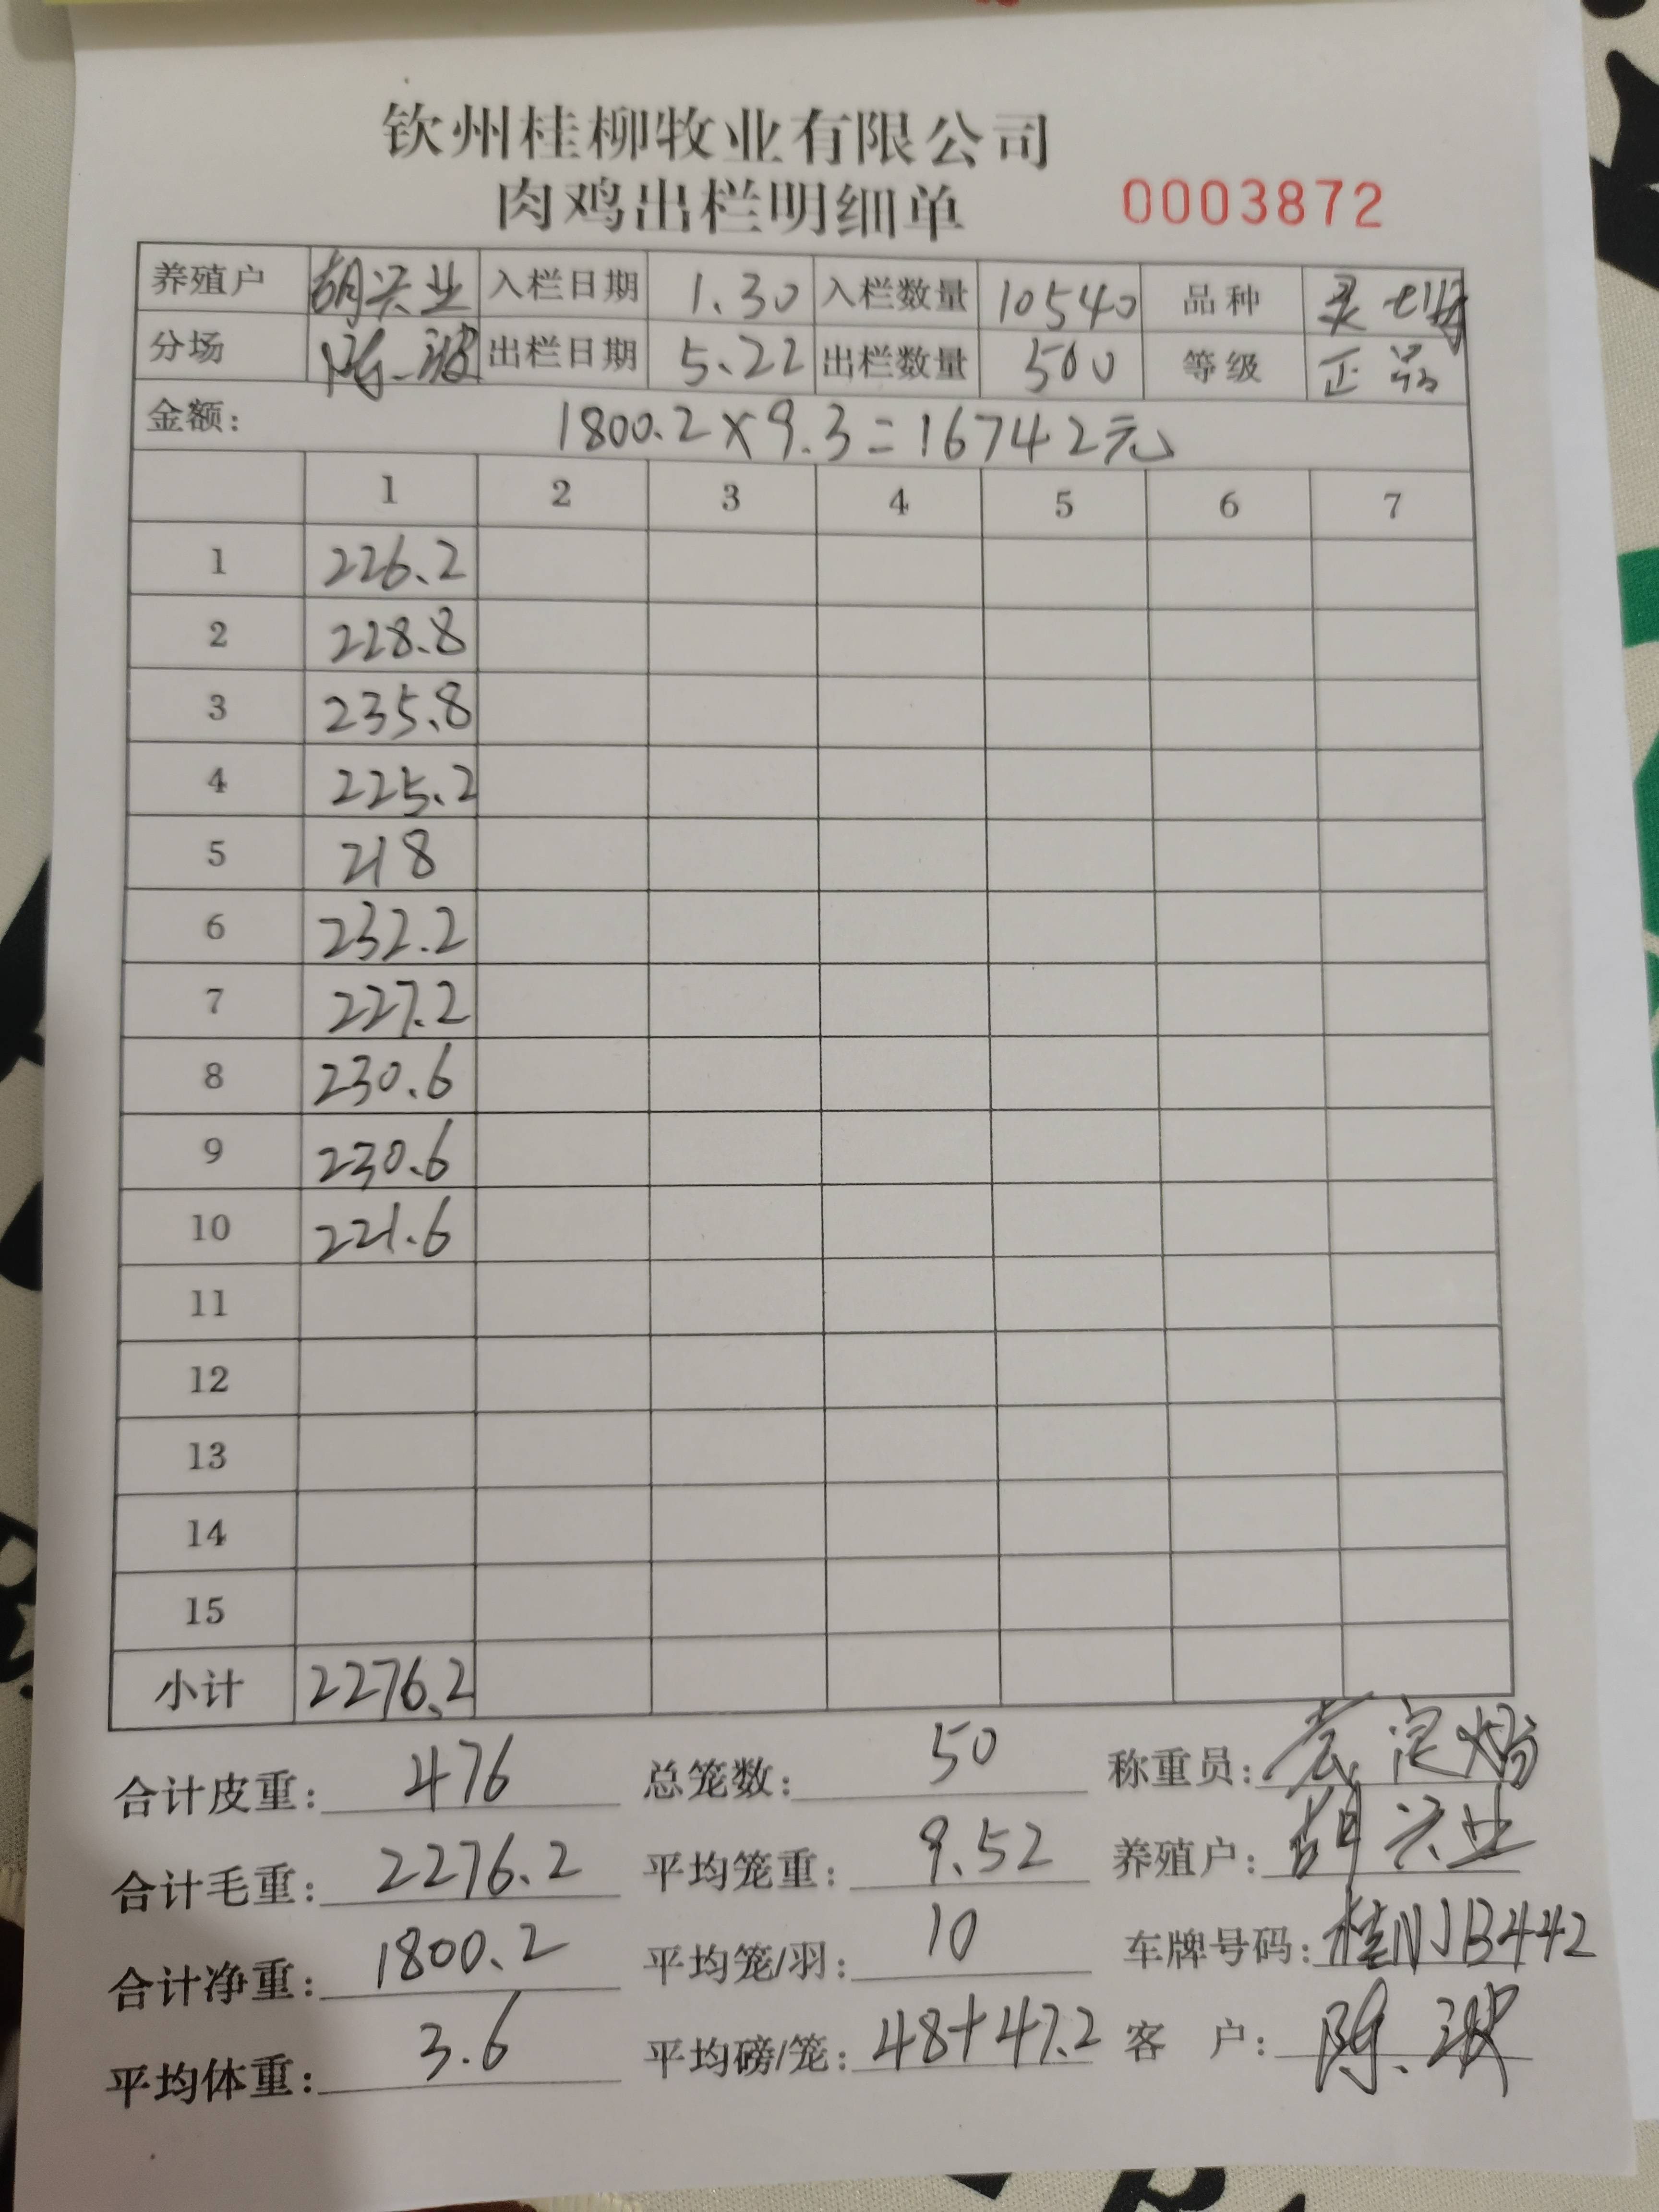 钦州桂柳牧业有限公司
肉鸡出栏明细单 0003872
养殖户 胡兴业 入栏日期 1.30 入栏数量 10540 品种 灵
分场 陈波 出栏日期 5.22 出栏数量 500 等级 正品
金额: 1800.2×9.3=16742元
1 2 3 4 5 6 7
1 226.2
2 228.8
3 235.8
4 225.2
5 218
6 232.2
7 227.2
8 230.6
9 230.6
10 221.6
11
12
13
14
15
小计 2276.2
合计皮重: 476 总笼数: 50 称重员:
合计毛重: 2276.2 平均笼重: 9.52 养殖户: 胡兴业
合计净重: 1800.2 平均笼/羽: 10 车牌号码: 桂NJB442
平均体重: 3.6 平均磅/笼: 48+47.2 客户: 陈波